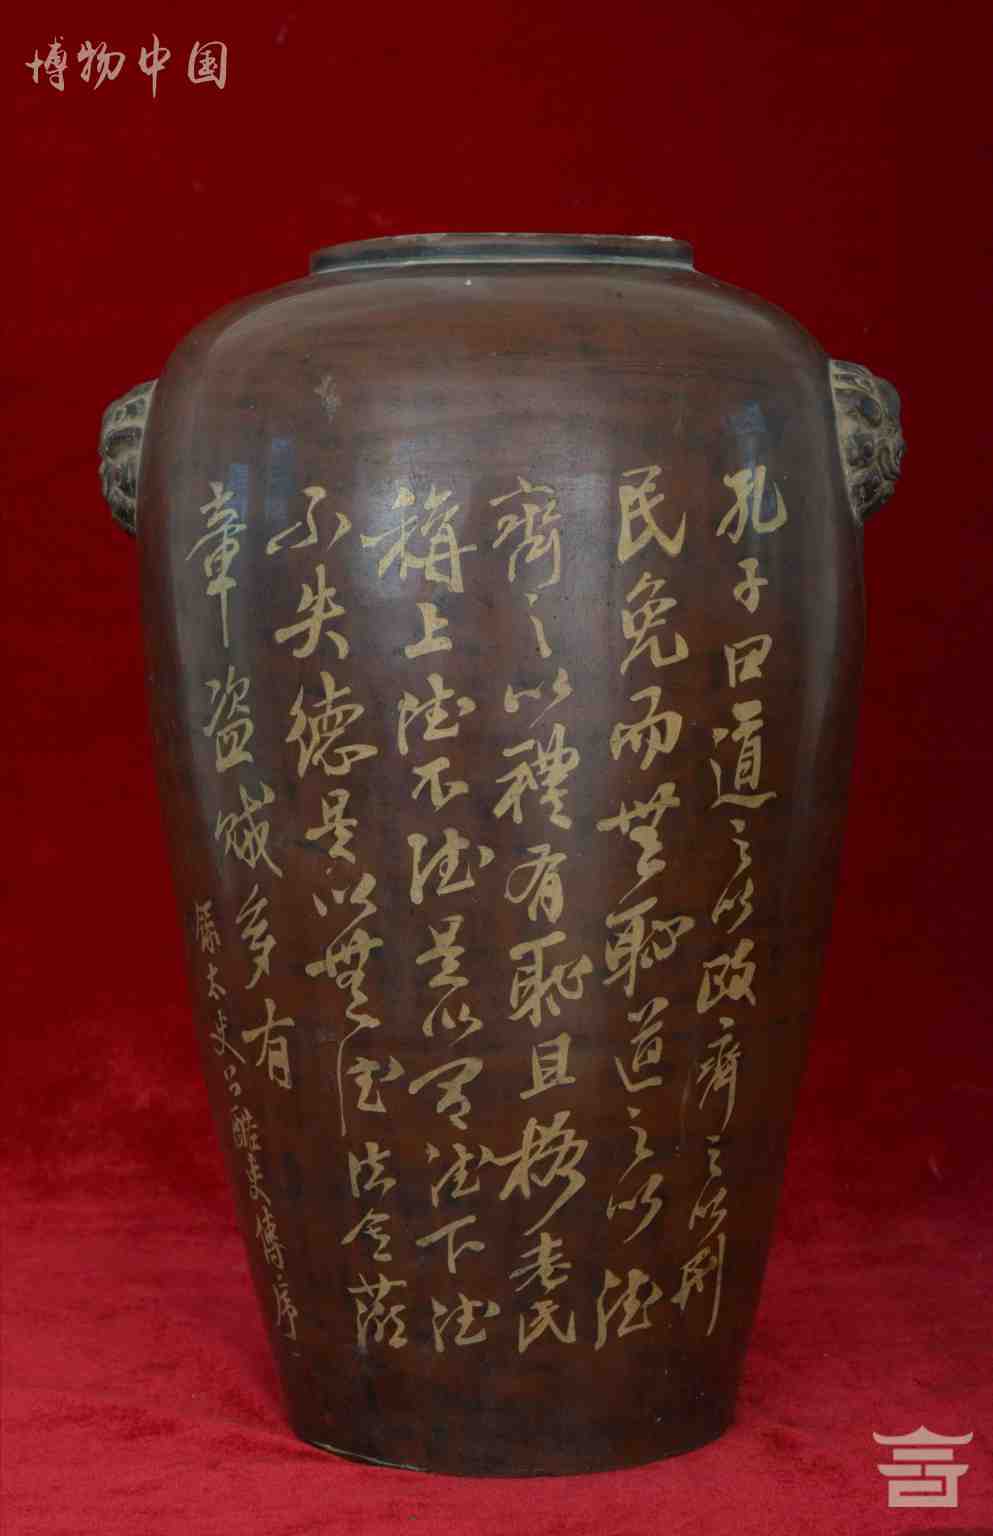 博物中国
孔子曰道之以政齊之以刑
民免而無恥道之以德
齊之以禮有恥且格老氏
稱上德不德是以有德下德
不失德是以無德法令滋
章盜賊多有
太史公酷吏傳序